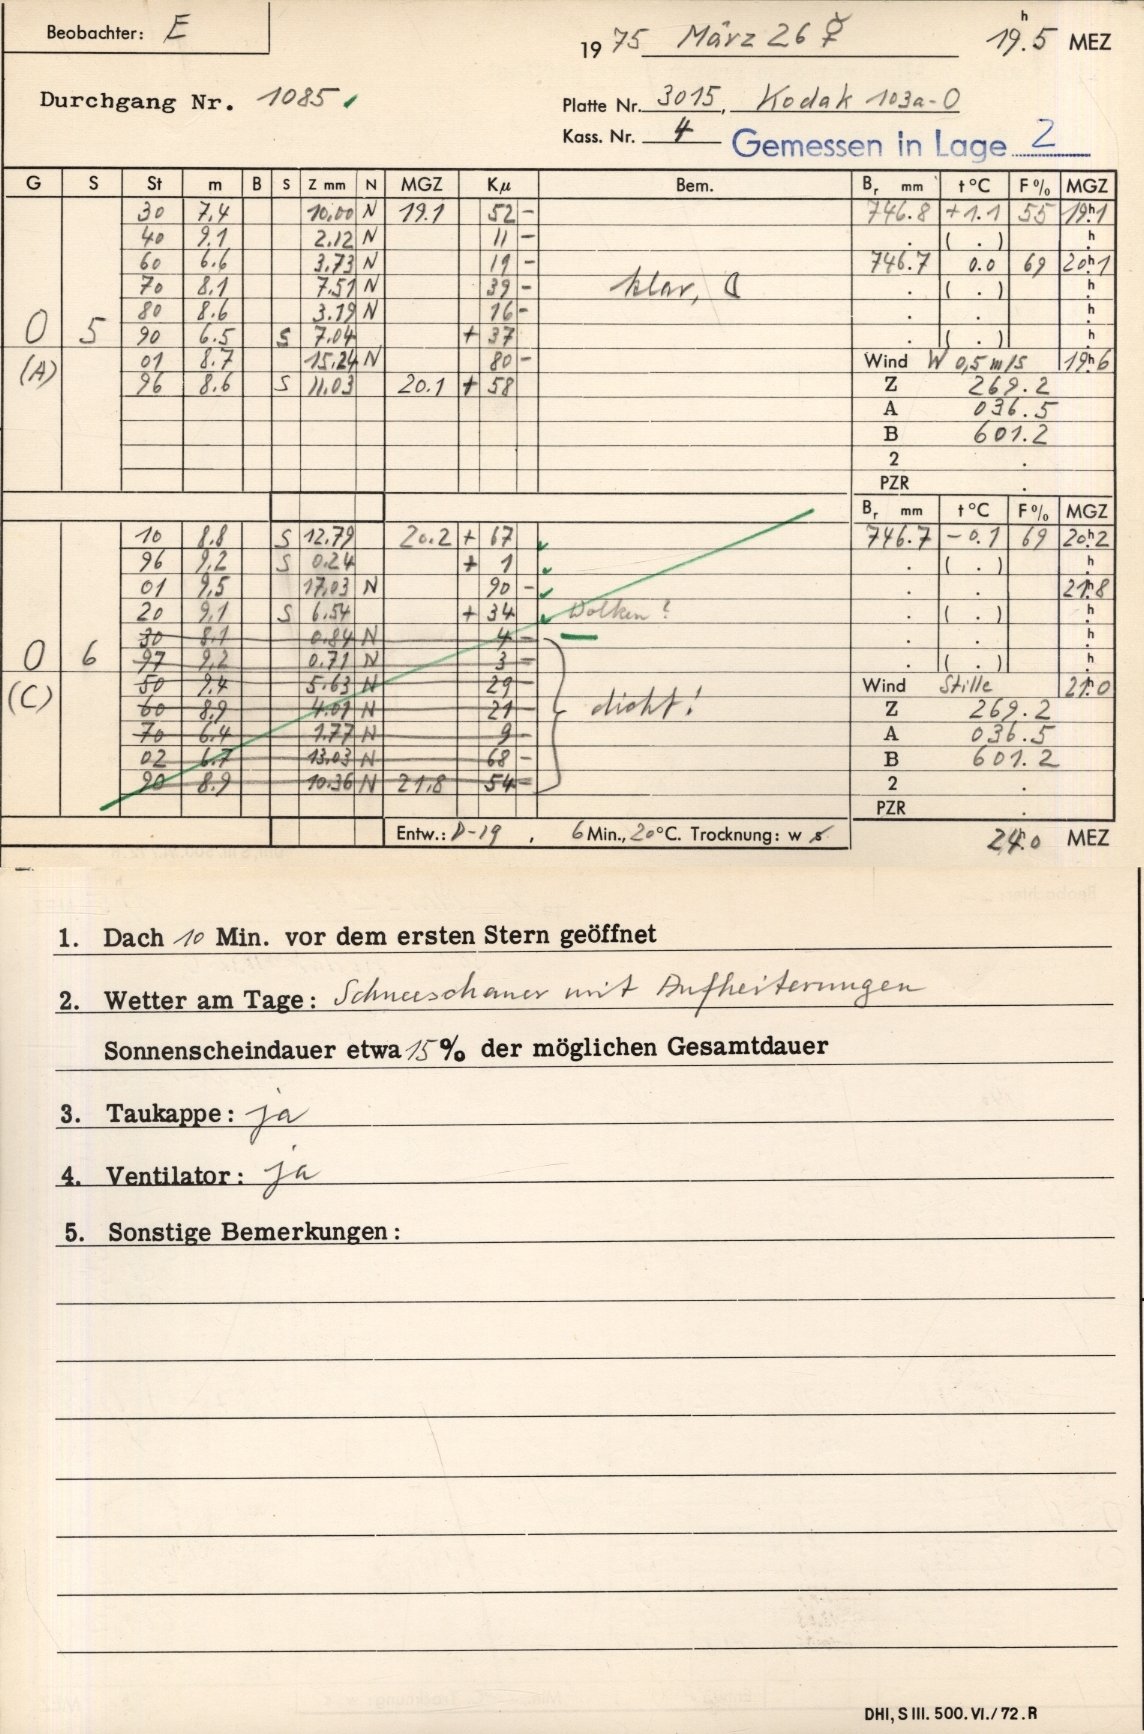 Beobachter: E
1975 März 26 ☿ 19h.5 MEZ
Durchgang Nr. 1085
Platte Nr. 3015, Kodak 103a-O
Kass. Nr. 4 Gemessen in Lage 2
G S St m B S Z mm N MGZ Kμ Bem. Br mm t °C F% MGZ
30 7,4 10,00 N 19.1 52 - 746.8 +1.1 55 19h1
40 9.1 2.12 N 11 - . ( . ) h
60 6.6 3.73 N 19 - 746.7 0.0 69 20h1
70 8.1 7.51 N 39 - klar, . ( . ) h
80 8.6 3.19 N 16 - . . h
0 5 90 6.5 S 7.04 + 37 . ( . ) h
(A) 01 8.7 15.24 N 80 - Wind W 0,5 m/s 19h6
96 8.6 S 11,03 20.1 + 58 Z 269.2
A 036.5
B 601.2
2 .
PZR .
Br mm t °C F% MGZ
10 8.8 S 12.79 20.2 + 67 746.7 - 0.1 69 20h2
96 9,2 S 0.24 + 1 . ( . ) h
01 9,5 17,03 N 90 - . . 21h8
20 9,1 S 6.54 + 34 Wolken? . ( . ) h
30 8.1 0.84 N 4 - . . h
0 6 97 9,2 0.71 N 3 - . ( . ) h
(C) 50 9.4 5.63 N 29 - Wind Stille 21h0
60 8,9 4.01 N 21 - dicht! Z 269.2
70 6.4 1.77 N 9 - A 036.5
02 6.7 13,03 N 68 - B 601.2
90 8.9 10.36 N 21,8 54 - 2 .
PZR .
Entw.: D-19 , 6 Min., 20 °C. Trocknung: w s 24h.0 MEZ
1. Dach 10 Min. vor dem ersten Stern geöffnet
2. Wetter am Tage: Schneeschauer mit Aufheiterungen
Sonnenscheindauer etwa 15% der möglichen Gesamtdauer
3. Taukappe: ja
4. Ventilator: ja
5. Sonstige Bemerkungen:
DHI, S III. 500. VI./72. R